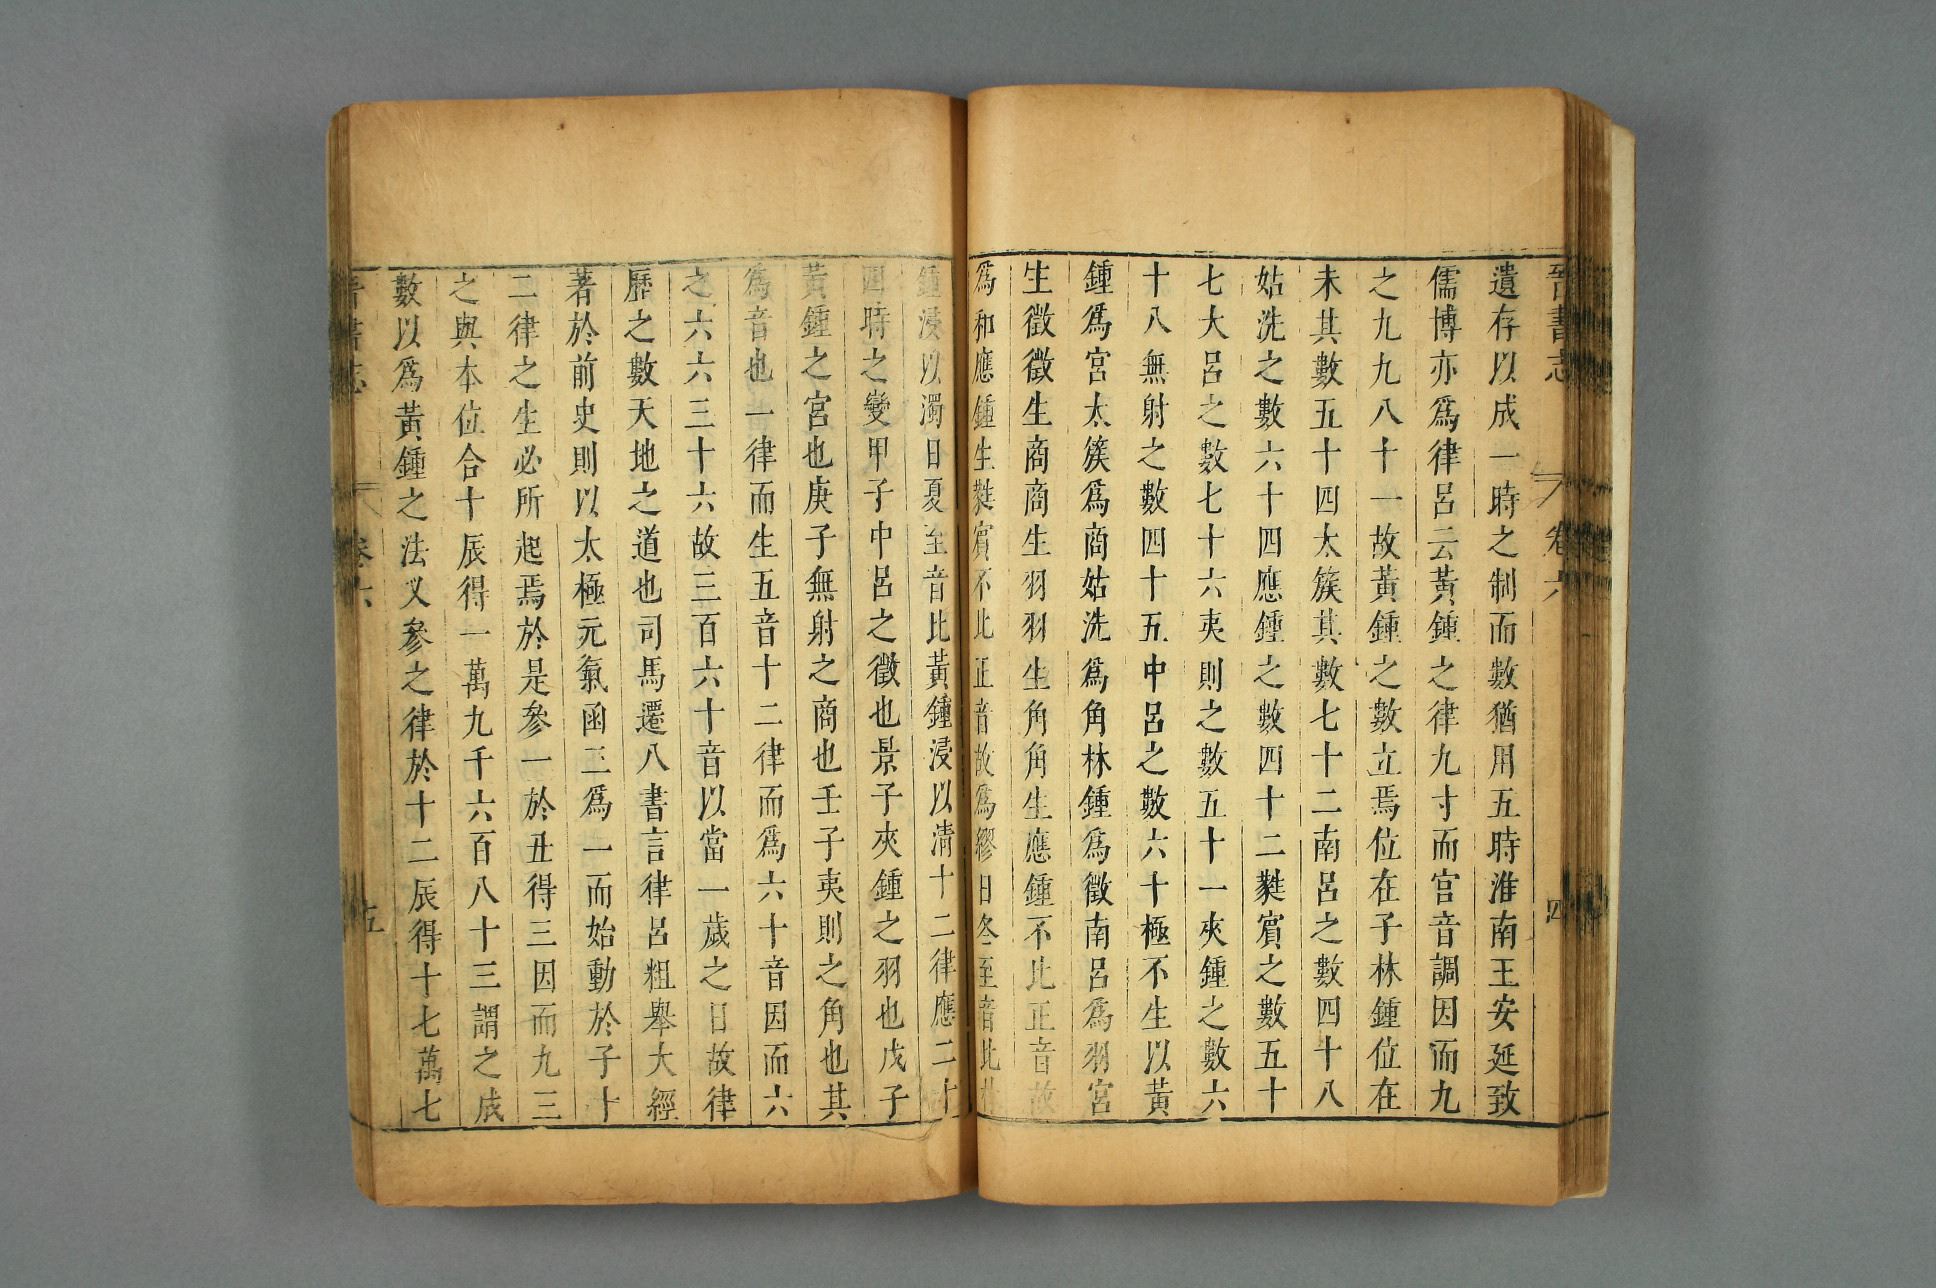 晉書志 卷六 四
遺存以成一時之制而數猶用五時淮南王安延致
儒博亦爲律呂云黃鍾之律九寸而宮音調因而九
之九九八十一故黃鍾之數立焉位在子林鍾位在
未其數五十四太簇其數七十二南呂之數四十八
姑洗之數六十四應鍾之數四十二蕤賓之數五十
七大呂之數七十六夷則之數五十一夾鍾之數六
十八無射之數四十五中呂之數六十極不生以黃
鍾爲宮太簇爲商姑洗爲角林鍾爲徵南呂爲羽宮
生徵徵生商商生羽羽生角角生應鍾不比正音故
爲和應鍾生蕤賓不比正音故爲繆日冬至音比林
鍾浸以濁日夏至音比黃鍾浸以清十二律應二十
四時之變甲子中呂之徵也景子夾鍾之羽也戊子
黃鍾之宮也庚子無射之商也壬子夷則之角也其
爲音也一律而生五音十二律而爲六十音因而六
之六六三十六故三百六十音以當一歲之日故律
歷之數天地之道也司馬遷八書言律呂粗舉大經
著於前史則以太極元氣函三爲一而始動於子十
二律之生必所起焉於是參一於丑得三因而九三
之與本位合十辰得一萬九千六百八十三謂之成
數以爲黃鍾之法又參之律於十二辰得十七萬七
晉書志 卷六 五